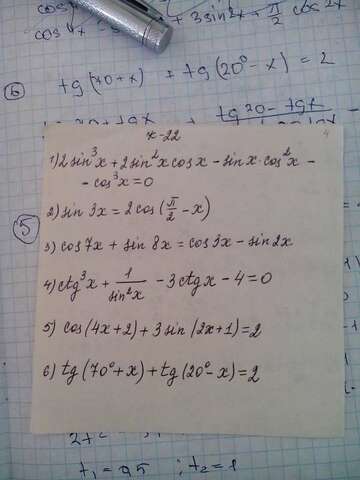 + 3 sin 2x + π/2 cos 2x
6
tg (70 + x) + tg (20° - x) = 2
к-22
4
1) 2 sin³x + 2 sin²x cos x - sin x · cos²x -
- cos³x = 0
2) sin 3x = 2 cos (π/2 - x)
5
3) cos 7x + sin 8x = cos 3x - sin 2x
4) ctg³x + 1/sin²x - 3 ctg x - 4 = 0
5) cos (4x + 2) + 3 sin (2x + 1) = 2
6) tg (70° + x) + tg (20° - x) = 2
t₁ = 0,5 ; t₂ = 1